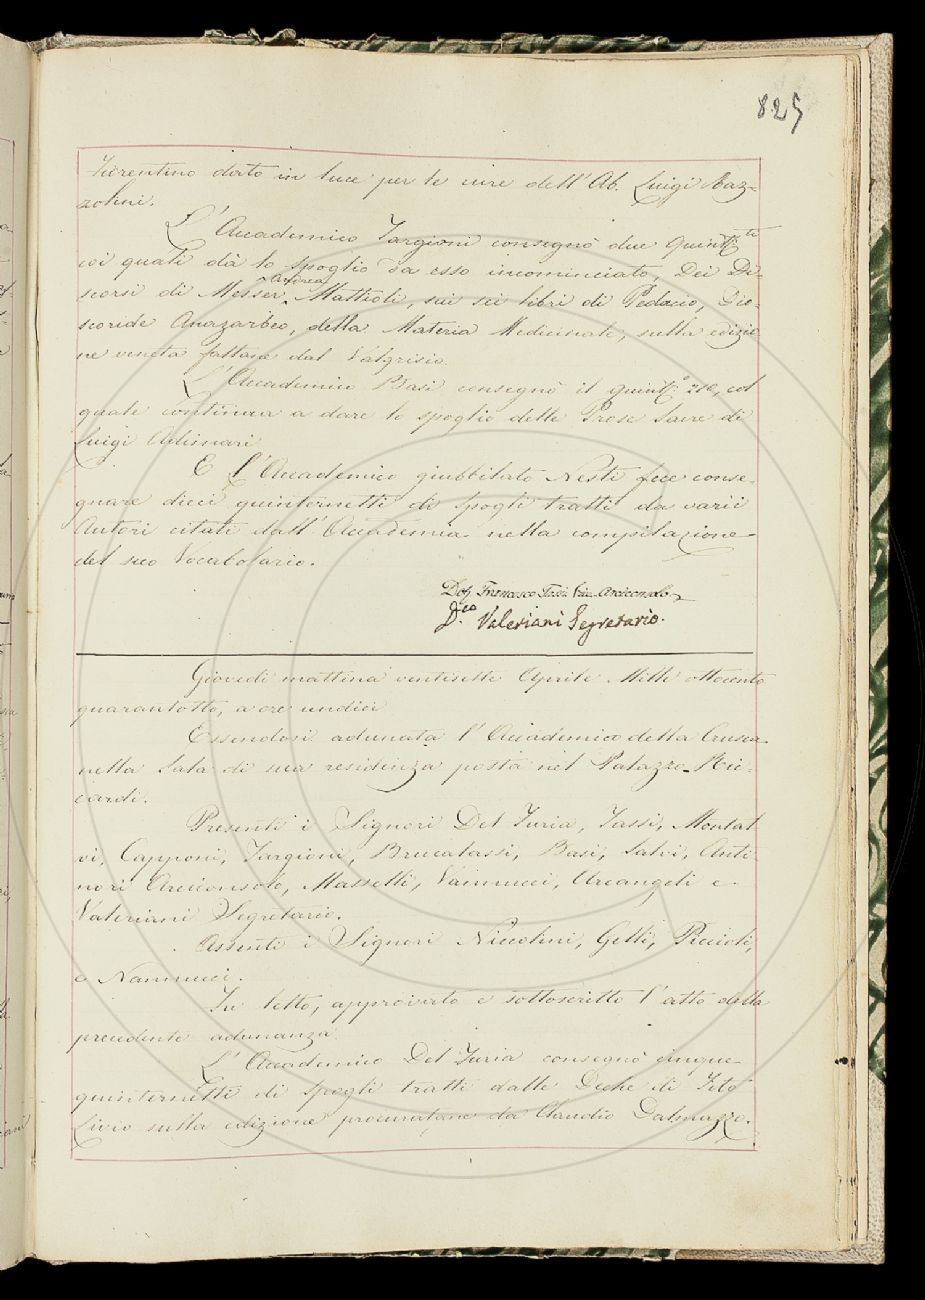 825
Fiorentino dato in luce per le cure dell'Ab. Luigi Raz-
zolini.
L'Accademico Targioni consegnò due Quint.ti
coi quali dà lo spoglio da esso incominciato, Dei Di-
scorsi di Messer Andrea Mattioli, sui sei libri di Pedacio, Dio-
scoride Anazarbeo, della Materia Medicinale, sulla edizio
ne veneta fattane dal Valgrisio.
L'Accademico Basi consegnò il quint.o 21º, col
quale continua a dare lo spoglio delle Prose Sacre di
Luigi Adimari
E l'Accademico giubbilato Nesti fece conse-
gnare dieci quinternetti di spogli tratti da varii
Autori citati dall'Accademia nella compilazione
del suo Vocabolario.
Dot. Francesco Tassi Vice Arciconsolo
D.co Valeriani Segretario.
Giovedì mattina ventisette Aprile Mille ottocento
quarantotto, a ore undici
Essendosi adunata l'Accademia della Crusca
nella Sala di sua residenza posta nel Palazzo Ric-
cardi.
Presenti i Signori Del Furia, Tassi, Montal
vi, Capponi, Targioni, Brucalassi, Basi, Salvi, Anti-
nori Arciconsolo, Masselli, Vannucci, Arcangeli e
Valeriani Segretario.
Assenti i Signori Niccolini, Gelli, Puccioli,
e Nannucci.
Fu letto, approvato e sottoscritto l'atto della
precedente adunanza.
L'Accademico Del Furia consegnò cinque
quinternetti di spogli tratti dalle Deche di Tito
Livio sulla edizione procuratane da Claudio Dalmazzo.